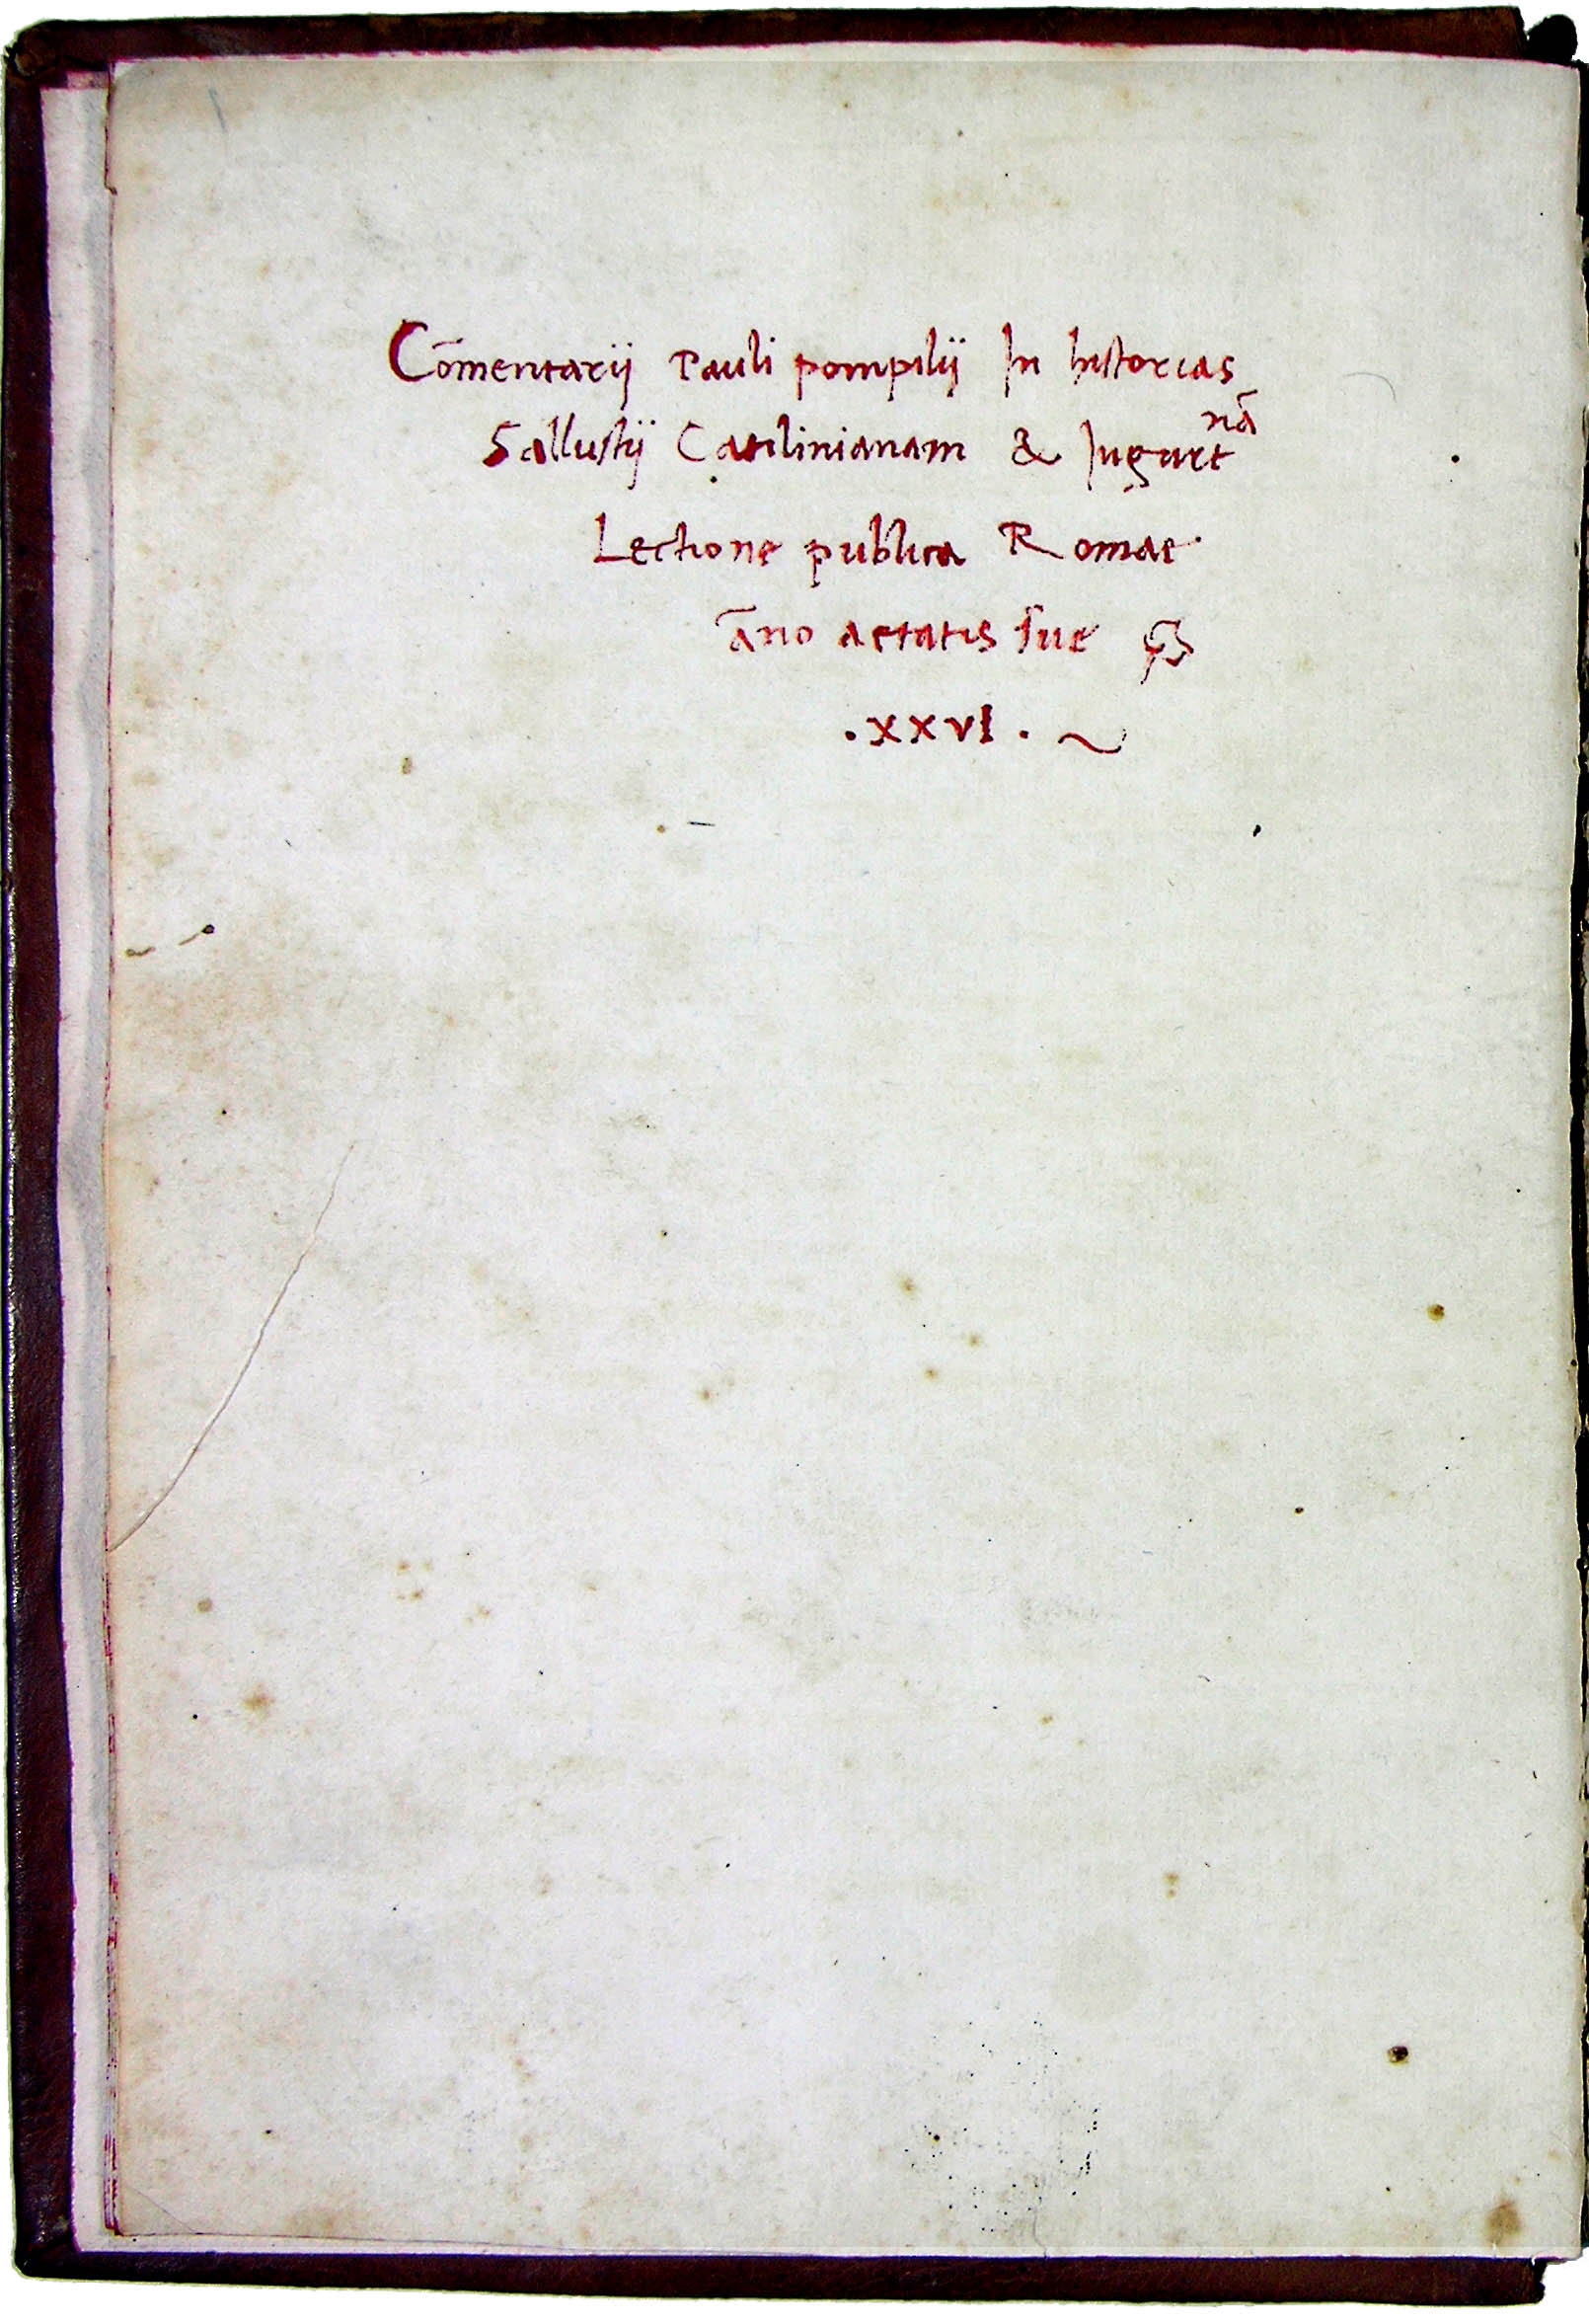 Cōmentarij Pauli pompilij In historias
Sallustij Catilinianam & Jugurtnā
Lectione publica Romae
āno aetatis sue
.xxvi.